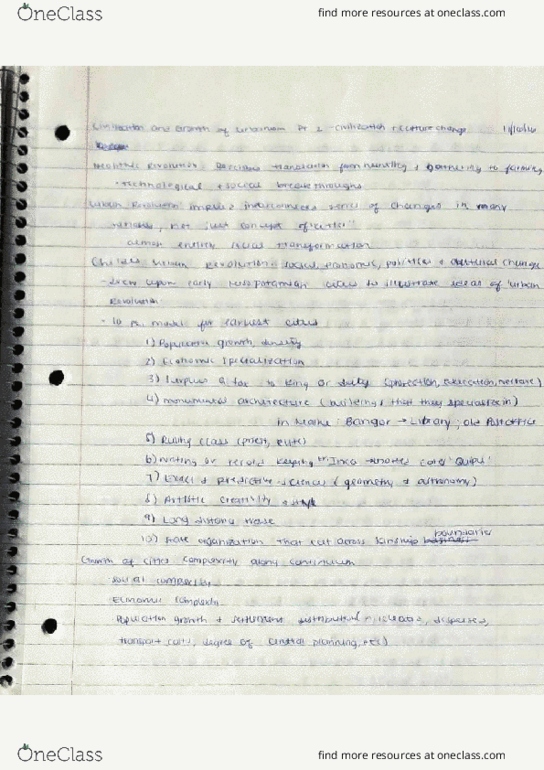 OneClass
find more resources at oneclass.com
Civilization and Growth of Urbanism Pt 2 - Civilization + culture change
Neolithic Revolution: transition from hunting + gathering to farming
- technological + social breakthroughs
Urban Revolution implies interconnected series of changes in many
variables, not just concept of "cities"
almost entirely social transformation
Childe's Urban Revolution: social, economic, political + cultural change
- Drew upon early Mesopotamian cities to illustrate ideas of 'urban
Revolution
- 10 pt. model for earliest cities
1) Population growth, density
2) Economic Specialization
3) Surplus & tax to king or deity (protection, )
4) monumental architecture (buildings that they specialize in)
In Maine: Bangor → Library; old Post Office
5) Ruling class (priest, elite)
6) writing or record keeping Inca knotted cord 'Quipu'
7) Exact + predictive science (geometry + astronomy)
8) Artistic creativity + style
9) Long distance trade
10) State organization that cut across kinship boundaries
Growth of cities complexity along continuum
Social complexity
Economic complexity
Population growth + settlement distribution (nucleated, dispersed,
transport costs, degree of central planning, etc)
OneClass
find more resources at oneclass.com